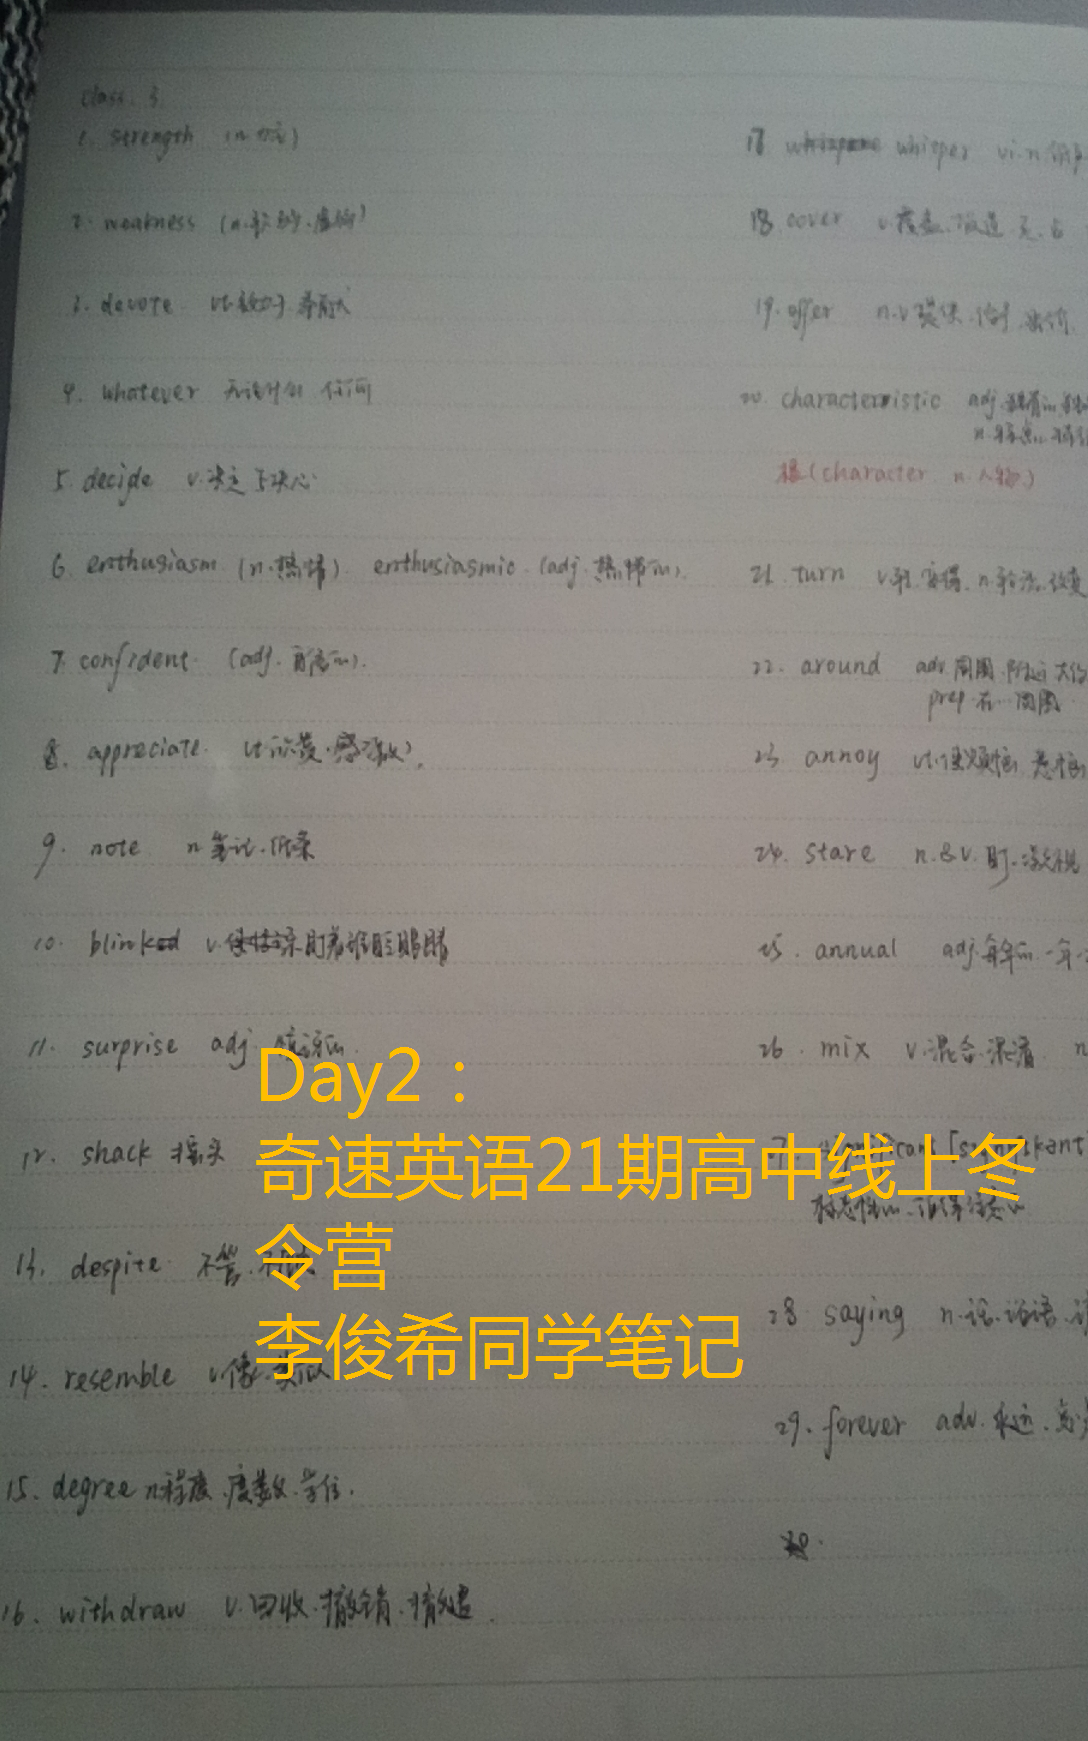 class 3
1. strength (n 力量)
2. weakness (n. 软弱. 虚弱)
3. devote vt.致力于.奉献
4. whatever 无论什么 任何
5. decide v.决定 下决心
6. enthusiasm (n.热情). enthusiasmic (adj.热情的).
7. confident. (adj.自信的).
8. appreciate. vt.欣赏.感激.
9. note n 笔记.纸条
10. blink v. 盯着 眨眼睛
11. surprise adj. 惊讶的.
12. shack 摇头
13. despite. 不管.
14. resemble v.像.类似
15. degree n程度.度数.学位.
16. withdraw v.回收.撤销.撤退.
17 whisper vi.n
18. cover v.覆盖.
19. offer n.v 提供. 出价
20. characteristic adj.独有的
n.特点.
根(character n.人物)
21. turn v.转.变得. n.转弯.改变
22. around adv.周围.附近
prep.在…周围
23 annoy vt.使烦恼
24. stare n.&v.盯.凝视
25. annual adj.每年的.一年一
26. mix v.混合.混淆 n
标志性的.值得注意的
28. saying n.话.话语
29. forever adv.永远.
Day2：
奇速英语21期高中线上冬
令营
李俊希同学笔记